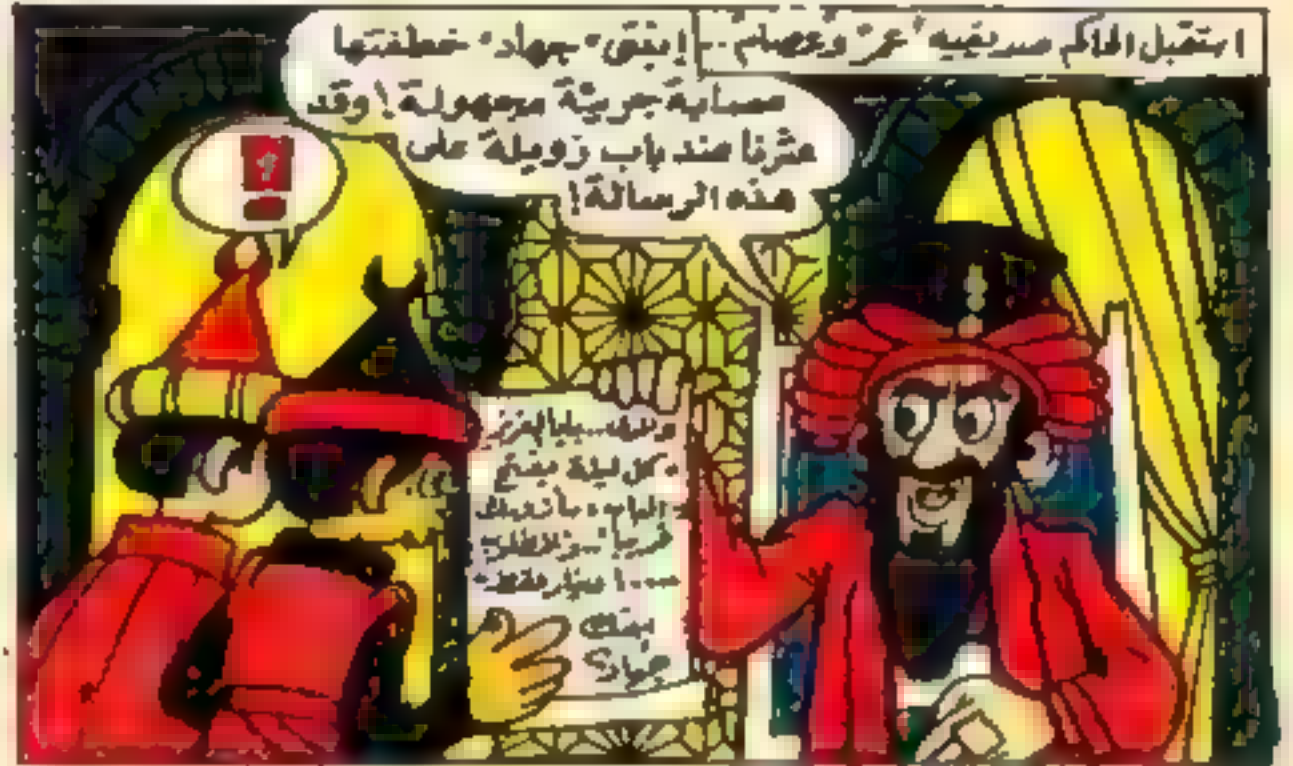 استقبل الحاكم صديقيه "عز" وعصام..
إبنتى "جهاد" خطفتها
عصابة جريئة مجهولة! وقد
عثرنا عند باب زويلة على
هذه الرسالة!
!
والدى
كل ليلة
قريباً
١٠٠٠ دينار فقط
بنتك
جهاد